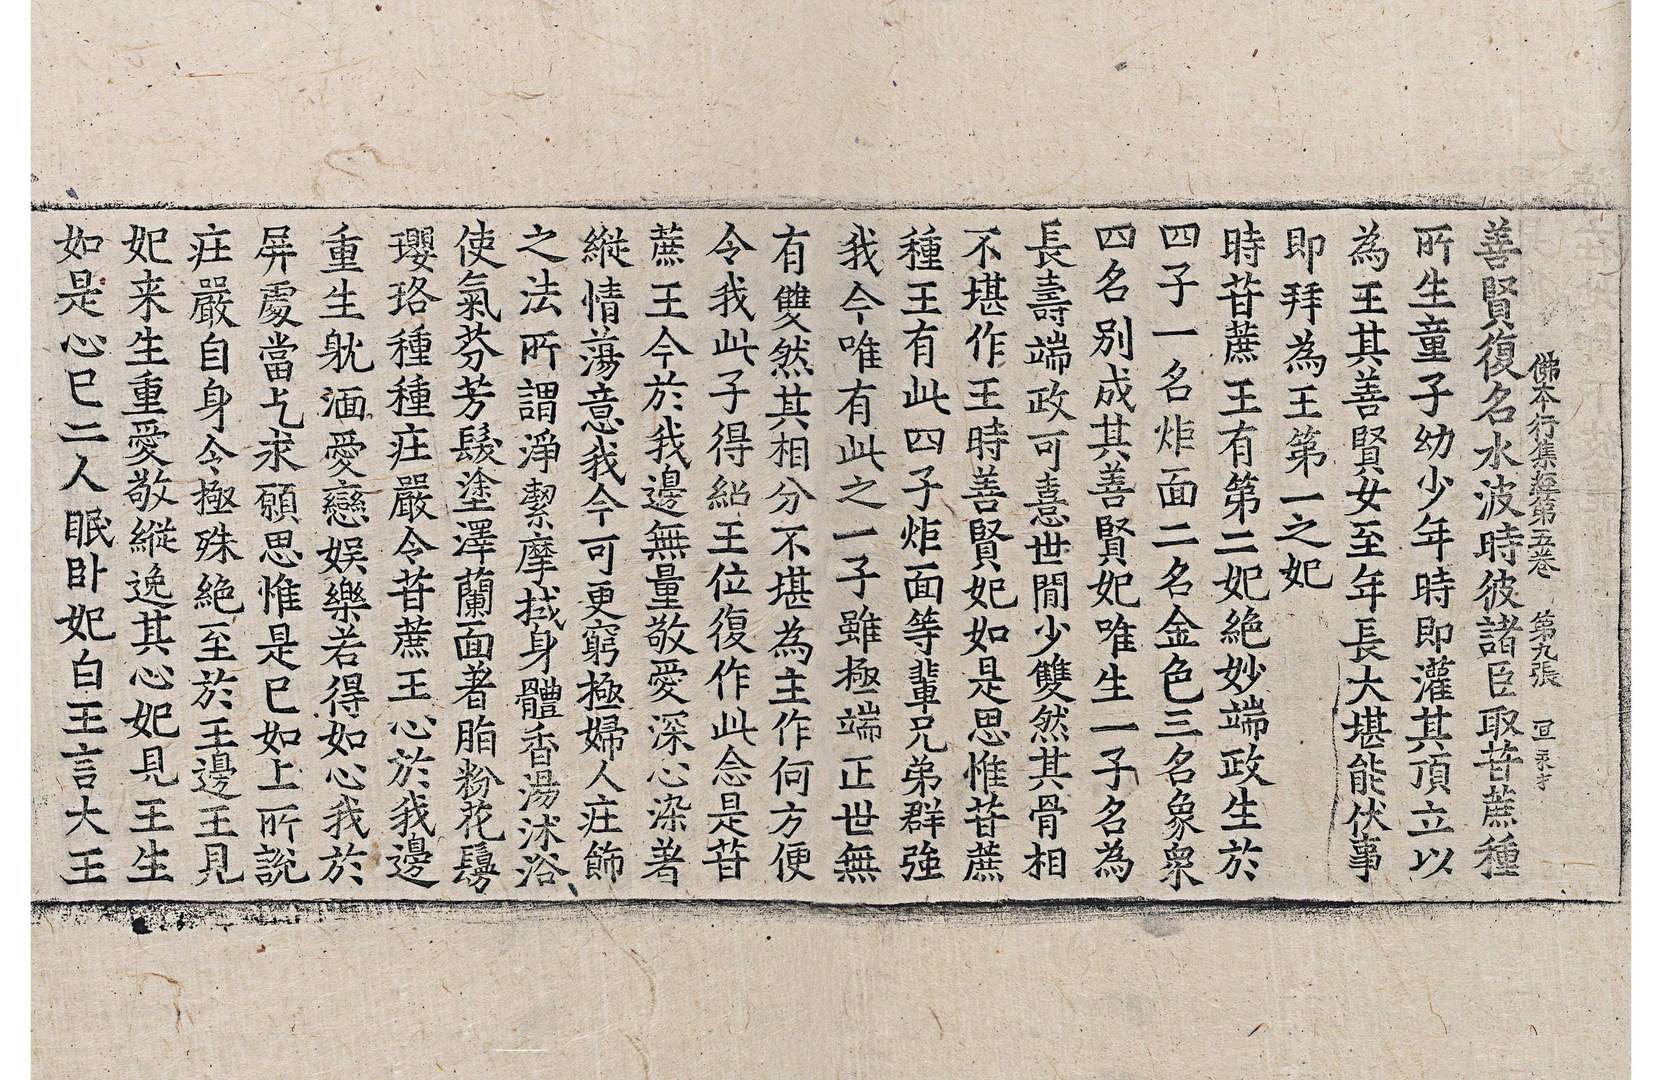 佛本行集經第五卷 第九張
善賢復名水波時彼諸臣取苷蔗種
所生童子幼少年時即灌其頂立以
為王其善賢女至年長大堪能伏事
即拜為王第一之妃
時苷蔗王有第二妃絶妙端政生於
四子一名炬面二名金色三名象衆
四名別成其善賢妃唯生一子名為
長壽端政可憙世閒少雙然其骨相
不堪作王時善賢妃如是思惟苷蔗
種王有此四子炬面等輩兄弟群強
我今唯有此之一子雖極端正世無
有雙然其相分不堪為主作何方便
令我此子得紹王位復作此念是苷
蔗王今於我邊無量敬愛深心染著
縱情蕩意我今可更窮極婦人疘飾
之法所謂淨潔摩拭身體香湯沐浴
使氣芬芳髮塗澤蘭面著脂粉花鬘
瓔珞種種疘嚴令苷蔗王心於我邊
重生躭湎愛戀娛樂若得如心我於
屏處當乞求願思惟是已如上所說
疘嚴自身令極殊絕至於王邊王見
妃来生重愛敬縱逸其心妃見王生
如是心已二人眠卧妃白王言大王